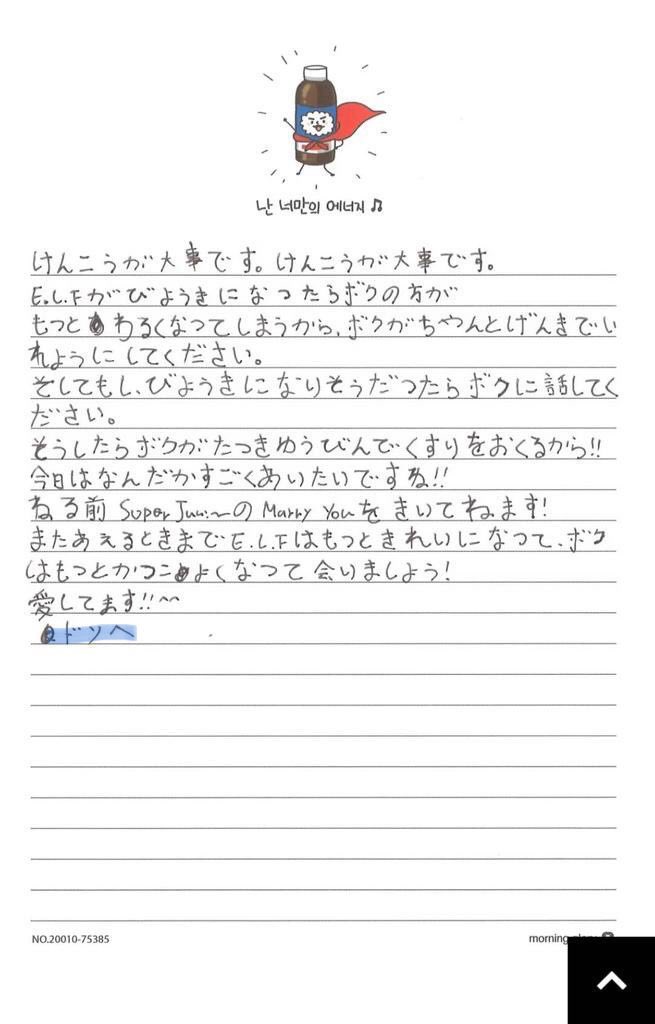 난 너만의 에너지 ♫
けんこうが大事です。けんこうが大事です。
E.L.Fがびようきになつたらボクの方が
もつと わるくなつてしまうから、ボクがちやんとげんきでい
れようにしてください。
そしてもし、びようきになりそうだつたらボクに話してく
ださい。
そうしたらボクがたつきゆうびんでくすりをおくるから!!
今日はなんだかすごくあいたいですね!!
ねる前 Super Juniorの Marry Youを きいてねます!
またあえるときまでE.L.Fはもつときれいになつて、ボク
はもつとかつこよくなつて会いましよう!
愛してます!!〜
ドンへ
NO.20010-75385
morning